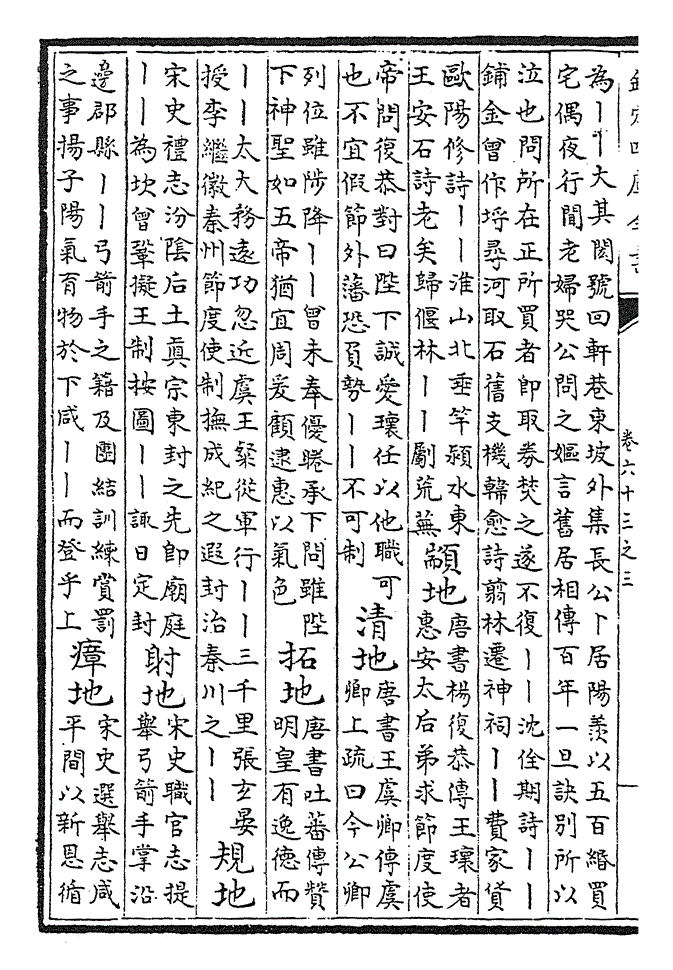 欽定四庫全書
卷六十三之三
為丨丨大其閎號曰軒巷東坡外集長公卜居陽羨以五百緡買
宅偶夜行聞老婦哭公問之嫗言舊居相傳百年一旦訣別所以
泣也問所在正所買者即取券焚之遂不復丨丨沈佺期詩丨丨
鋪金曾作埒尋河取石舊支機韓愈詩翦林遷神祠丨丨費家貲
歐陽修詩丨丨淮山北垂竿潁水東
王安石詩老矣歸偃林丨丨斸荒蕪
顓地
唐書楊復恭傳王瓌者
惠安太后弟求節度使
帝問復恭對曰陛下誠愛瓌任以他職可
也不宜假節外藩恐負勢丨丨不可制
清地
唐書王虞卿傳虞
卿上疏曰今公卿
列位雖陟降丨丨曾未奉優睠承下問雖陛
下神聖如五帝猶宜周爰顧逮惠以氣色
拓地
唐書吐蕃傳贊
明皇有逸德而
丨丨太大務遠功忽近虞王粲從軍行丨丨三千里張玄晏
授李繼徽秦州節度使制撫成紀之遐封治秦川之丨丨
規地
宋史禮志汾陰后土真宗東封之先即廟庭
丨丨為坎曾鞏擬王制按圖丨丨諏日定封
射地
宋史職官志提
舉弓箭手掌沿
邊郡縣丨丨弓箭手之籍及團結訓練賞罰
之事揚子陽氣育物於下咸丨丨而登乎上
瘴地
宋史選舉志咸
平間以新恩循